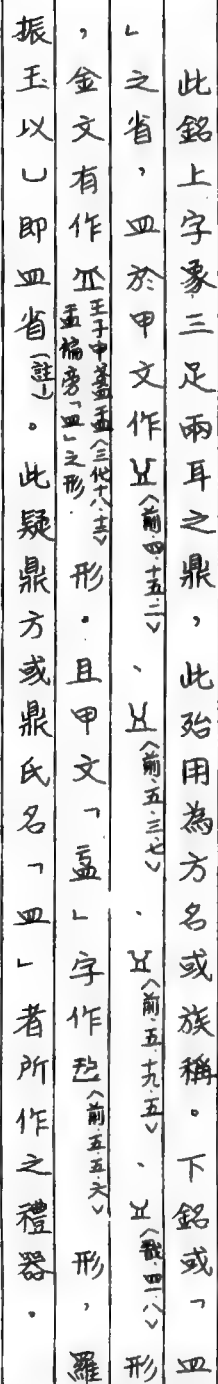 此銘上字象三足兩耳之鼎,此殆用為方名或族稱。下銘或「皿
」之省,皿於甲文作〈前.四.十五.二〉、〈前.五.三.七〉、〈前.五.十九.五〉、〈戩.四一.八〉形
,金文有作王子申盞盂〈三代十八.十三〉盂偏旁「皿」之形.形。且甲文「」字作〈前.五.五.六〉形,羅
振玉以凵即皿省(註一)。此疑鼎方或鼎氏名「皿」者所作之禮器。